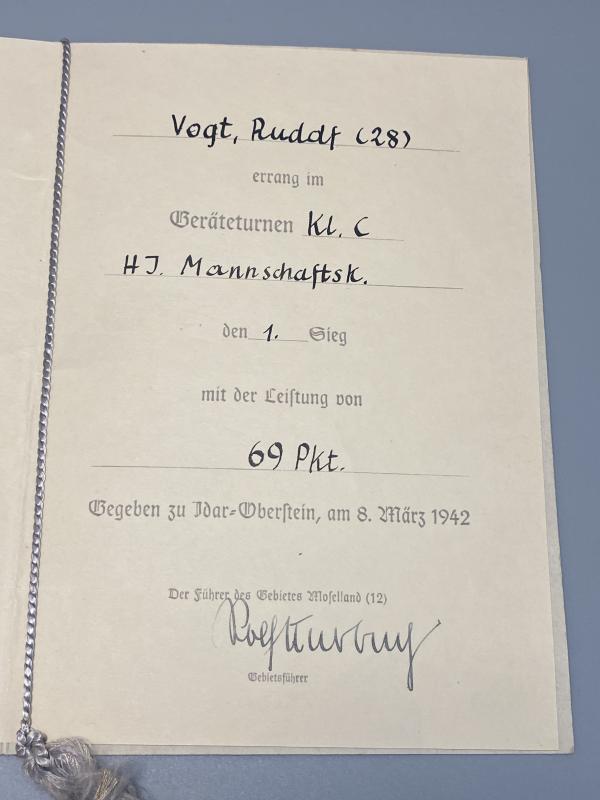 Vogt, Rudolf (28)
errang im
Geräteturnen Kl. C
HJ. Mannschaftsk.
den 1. Sieg
mit der Leiſtung von
69 Pkt.
Gegeben zu Idar-Oberſtein, am 8. März 1942
Der Führer des Gebietes Moſelland (12)
Gebietsführer